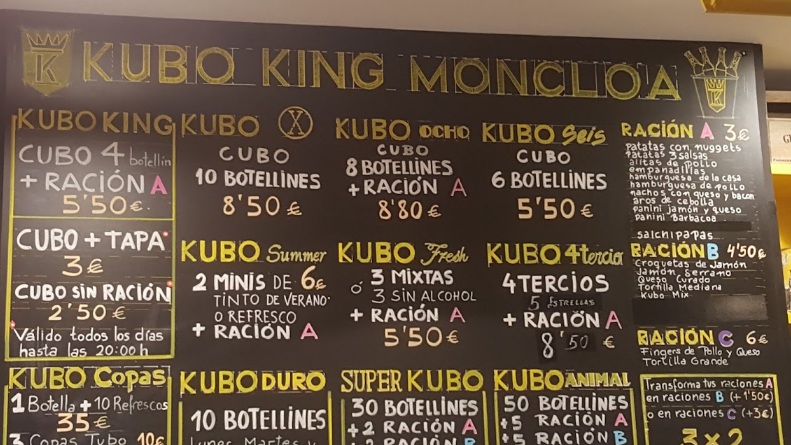 K
KUBO KING MONCLOA
K
KUBO KING
CUBO 4 botellín
+ RACIÓN A
5'50€.
CUBO + TAPA
3€
CUBO SIN RACIÓN
2'50€
Válido todos los días
hasta las 20:00h
KUBO X
CUBO
10 BOTELLINES
8'50€
KUBO OCHO
CUBO
8 BOTELLINES
+ RACIÓN A
8'80€
KUBO Seis
CUBO
6 BOTELLINES
5'50€
RACIÓN A 3€
Patatas con nuggets
Patatas 3 salsas
alitas de pollo
empanadillas
hamburguesa de la casa
hamburguesa de pollo
nachos con queso y bacon
aros de cebolla
panini jamón y queso
panini Barbacoa
Salchipapas
KUBO Summer
2 MINIS DE 6€
TINTO DE VERANO
O REFRESCO
+ RACIÓN A
KUBO Fresh
Ó 3 MIXTAS
3 SIN ALCOHOL
+ RACIÓN A
5'50€
KUBO 4tercios
4 TERCIOS
5 ESTRELLAS
+ RACIÓN A
8'50€
RACIÓN B 4'50€
Croquetas de Jamón
Jamón Serrano
Queso Curado
Tortilla Mediana
Kubo Mix
RACIÓN C 6€
Fingers de Pollo y Queso
Tortilla Grande
KUBO Copas
1 Botella + 10 Refrescos
35€
3 Copas Tubo 10€
KUBO DURO
10 BOTELLINES
Lunes Martes y
SUPER KUBO
30 BOTELLINES
+2 RACIÓN A
+2 RACIÓN B
KUBO ANIMAL
50 BOTELLINES
+5 RACIÓN A
+5 RACIÓN B
Transforma tus raciones A
en raciones B (+1'50€)
o en raciones C (+3€)
3x2